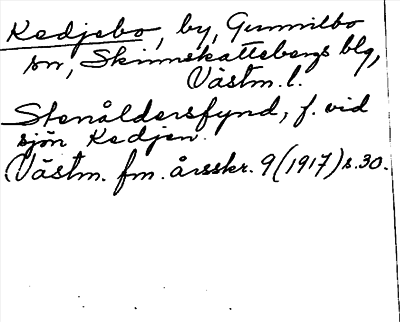 Kedjebo, by, Gunnilbo
sn, Skinnskattebergs blg,
Västm. l.
Stenåldersfynd, f. vid
sjön Kedjen.
Västm. fm. årsskr. 9 (1917) s. 30.